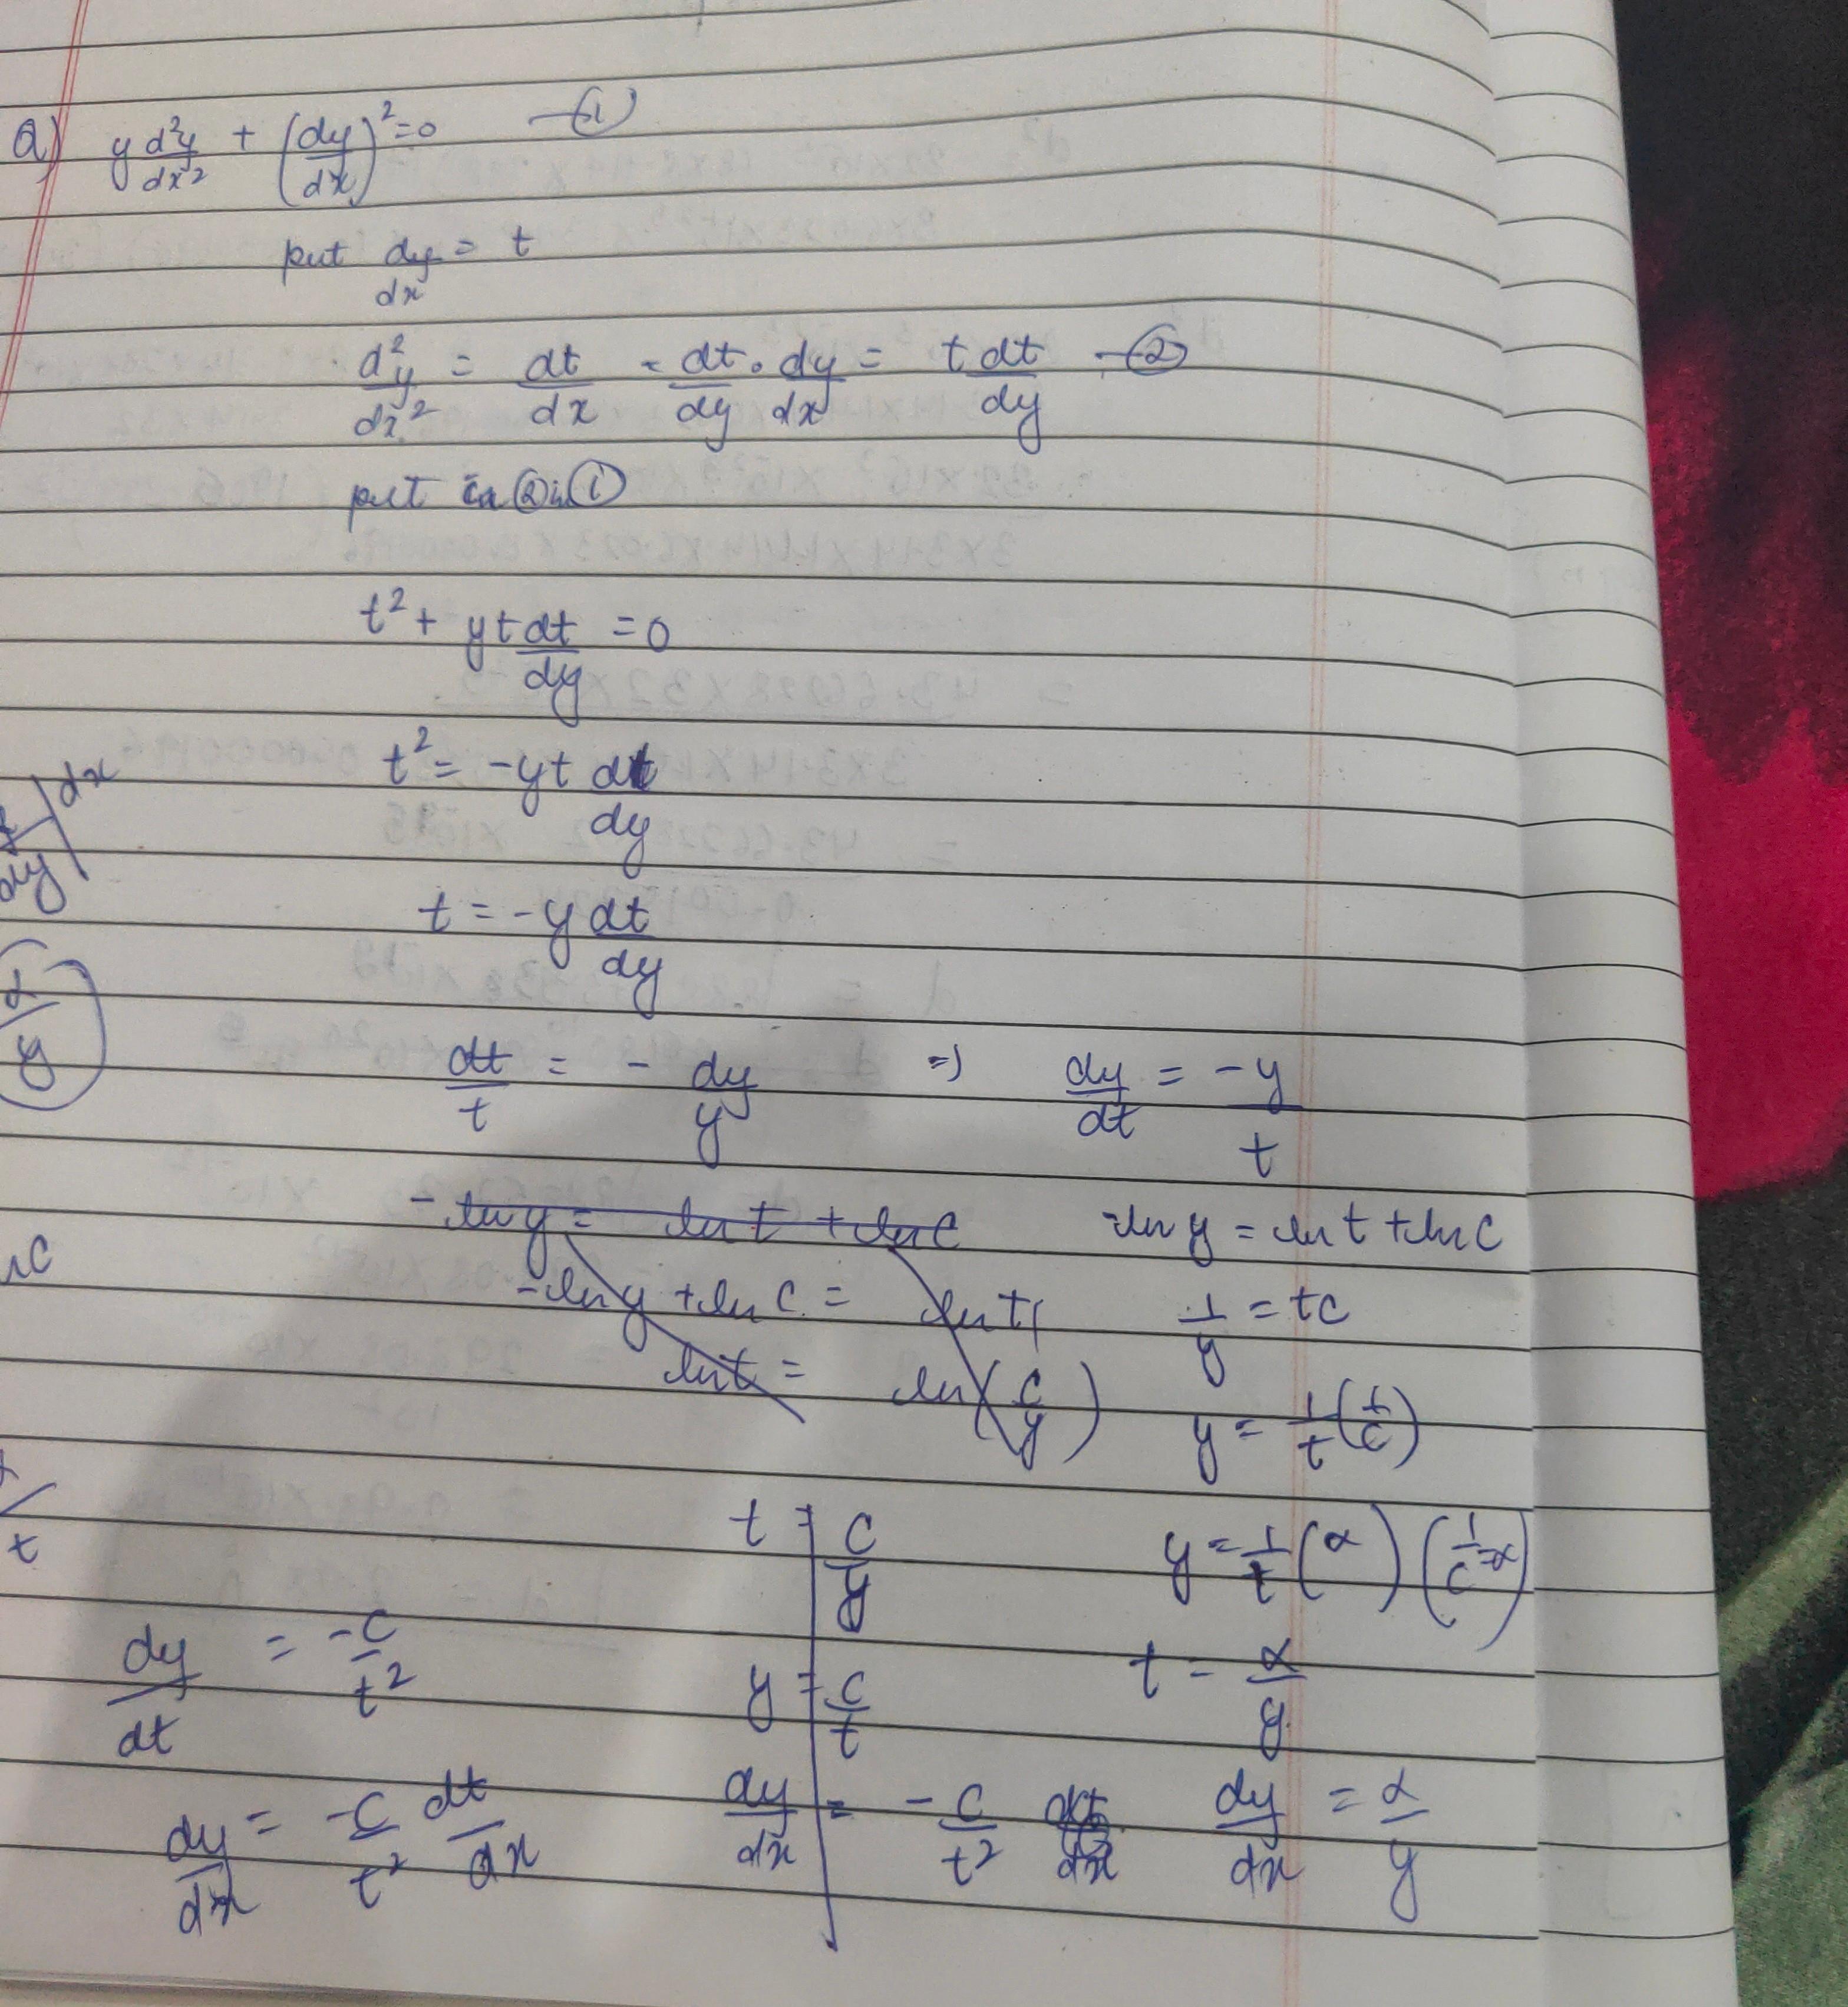 Q) y d²y/dx² + (dy/dx)² = 0 —①
put dy/dx = t
d²y/dx² = dt/dx = dt/dy · dy/dx = t dt/dy —②
put ② in ①
t² + yt dt/dy = 0
t² = -yt dt/dy
dx
dy
t = -y dt/dy
y
dt/t = - dy/y ⇒ dy/dt = -y/t
-ln y = ln t + ln c
-ln y = ln t + ln c
-ln y + ln c = ln t
1/y = tc
ln t = ln(c/y)
y = 1/t (1/c)
t = c/y
y = 1/t (α) (1/c = α)
t
dy/dt = -c/t²
y = c/t
t = α/y
dy/dx = -c/t² dt/dx
dy/dx = -c/t² dt/dx
dy/dx = α/y